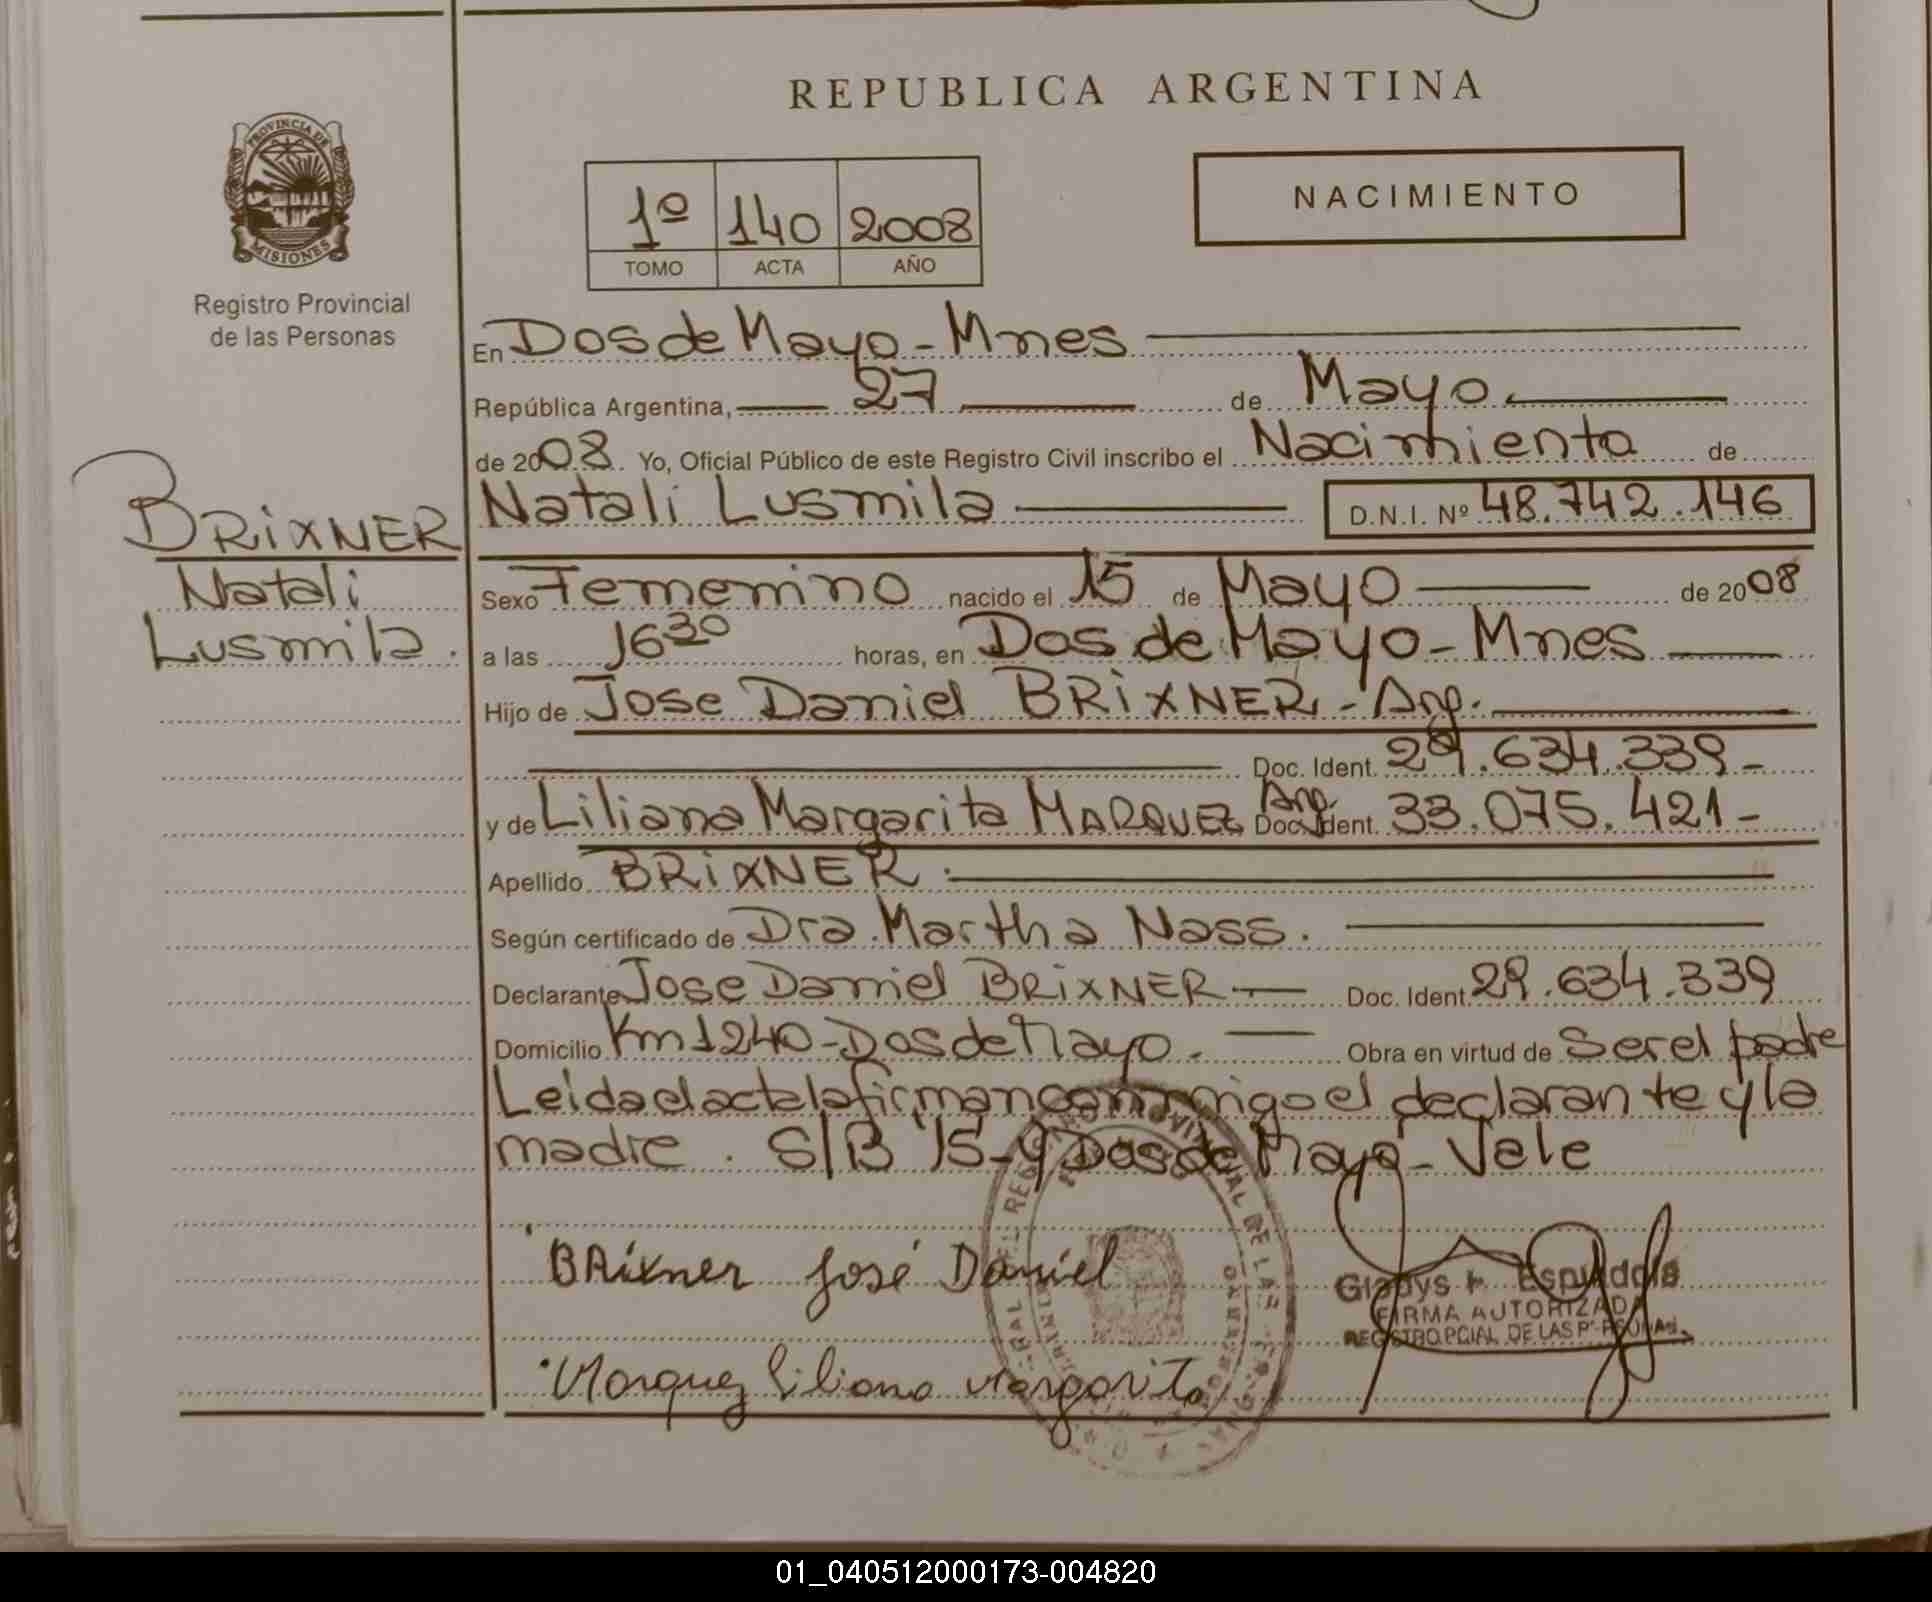 REPUBLICA ARGENTINA
PROVINCIA DE
MISIONES
Registro Provincial
de las Personas
1º 140 2008
TOMO ACTA AÑO
NACIMIENTO
En Dos de Mayo - Mnes
República Argentina, 27 de Mayo
de 2008 Yo, Oficial Público de este Registro Civil inscribo el Nacimiento de
Natali Lusmila D.N.I. Nº 48.742.146
BRiXNER
Natali
Lusmila.
Sexo Femenino nacido el 15 de Mayo de 2008
a las 16 30 horas, en Dos de Mayo - Mnes
Hijo de Jose Daniel BRiXNER - Arg.
Doc. Ident. 29.634.339 -
y de Liliana Margarita MARQUEZ Arg. Doc. Ident. 33.075.421 -
Apellido BRiXNER.
Según certificado de Dra. Martha Nass.
Declarante Jose Daniel BRiXNER Doc. Ident. 29.634.339
Domicilio Km 1240 - Dos de Mayo. Obra en virtud de Ser el padre
Leida el acta la firman conmigo el declarante y la
madre. S/B "15 - y Dos de Mayo" - Vale
BRixner José Daniel
Marquez Liliana Margarita
Gladys Espindola
FIRMA AUTORIZADA
REGISTRO PCIAL DE LAS PERSONAS
01_040512000173-004820